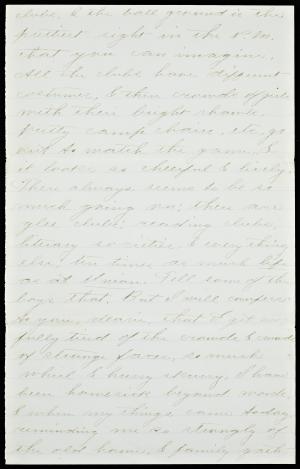 clubs, & the ball ground is the
prettiest sight in the P.M.
that you can imagine.
All the clubs have different
costumes, & then crowds of girls
with their bright shawls,
pretty camp chairs, etc, go
out to watch the game, &
it looks so cheerful & lively.
There always seems to be so
much going on; there are
glee clubs, reading clubs,
literary societies & everything
else, ten times as much life
as at Tell some of the
boys that. But I will confess
to you, dearie, that I get
fully tired of the crowds & crowds
of strange faces, so much
whirl & hurry skurry, I have
been homesick beyond words,
& when my things came to-day,
reminding me so strongly of
the old home, & family